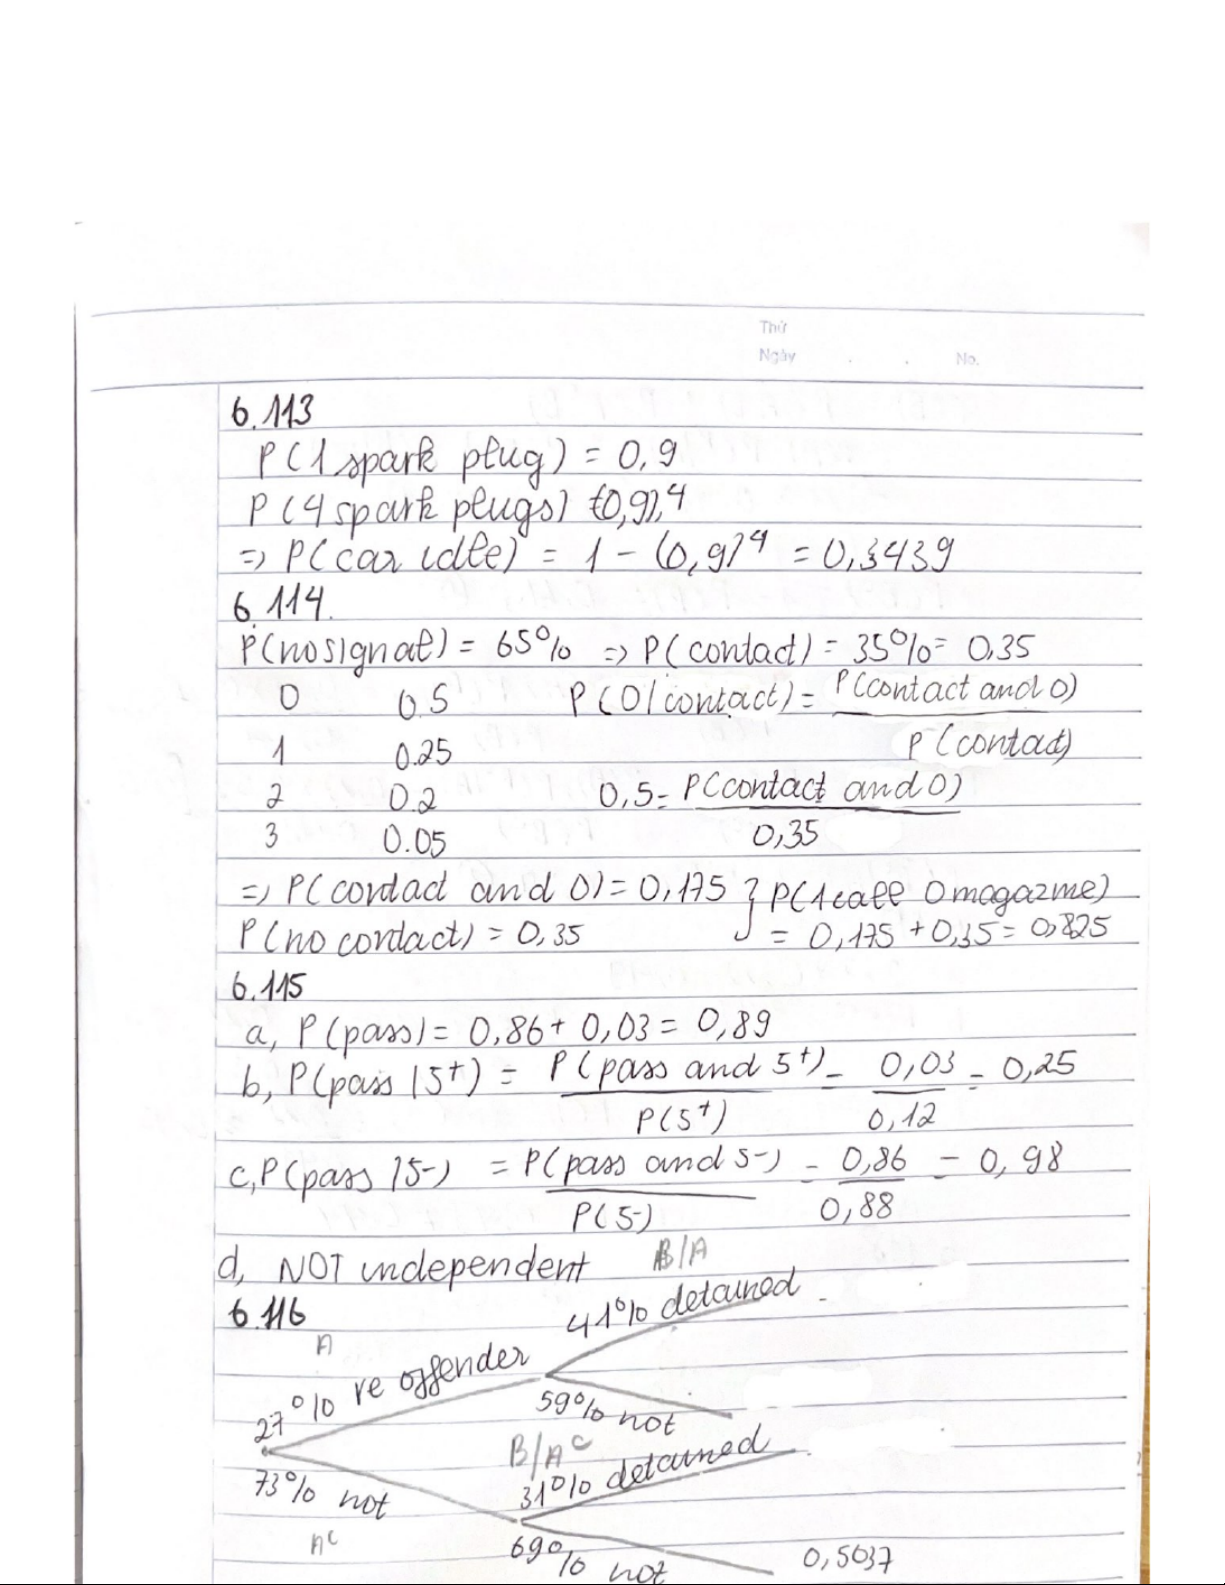 Thứ
Ngày . . No.
6.113
P(1 spark plug) = 0,9
P(4 spark plugs) (0,9),4
=> P(car idle) = 1 - (0,9)^4 = 0,3439
6.114.
P(no signal) = 65% => P(contact) = 35% = 0.35
0 0.5 P(0/contact) = P(contact and 0)
1 0.25 P(contact)
2 0.2 0,5 = P(contact and 0)
3 0.05 0,35
=> P(contact and 0) = 0,175 } P(1 call 0 magazine)
P(no contact) = 0,35 = 0,175 + 0,35 = 0,825
6.115
a, P(pass) = 0,86 + 0,03 = 0,89
b, P(pass | 5+) = P(pass and 5+) = 0,03 = 0,25
P(5+) 0,12
c, P(pass | 5-) = P(pass and 5-) = 0,86 = 0,98
P(5-) 0,88
d, NOT independent B/A
6.116 41% detained
A
27% re offender
59% not
B/A^c
73% not 31% detained
A^c
69% not 0,5037